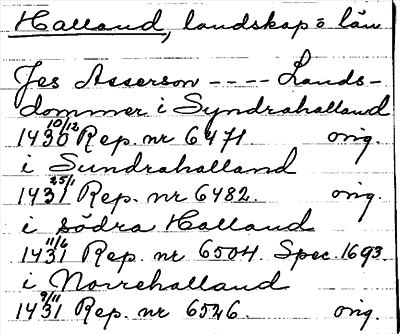 Halland, landskap o län
Jes Asserson ---- Lands-
dommer i Syndrahalland
1430 10/12 Rep. nr 6471 orig.
i Sundrahalland
1431 25/1 Rep. nr 6482. orig.
i södra Halland
1431 11/6 Rep. nr 6504. Spec. 1693.
i Norrehalland
1431 9/11 Rep. nr 6526. orig.